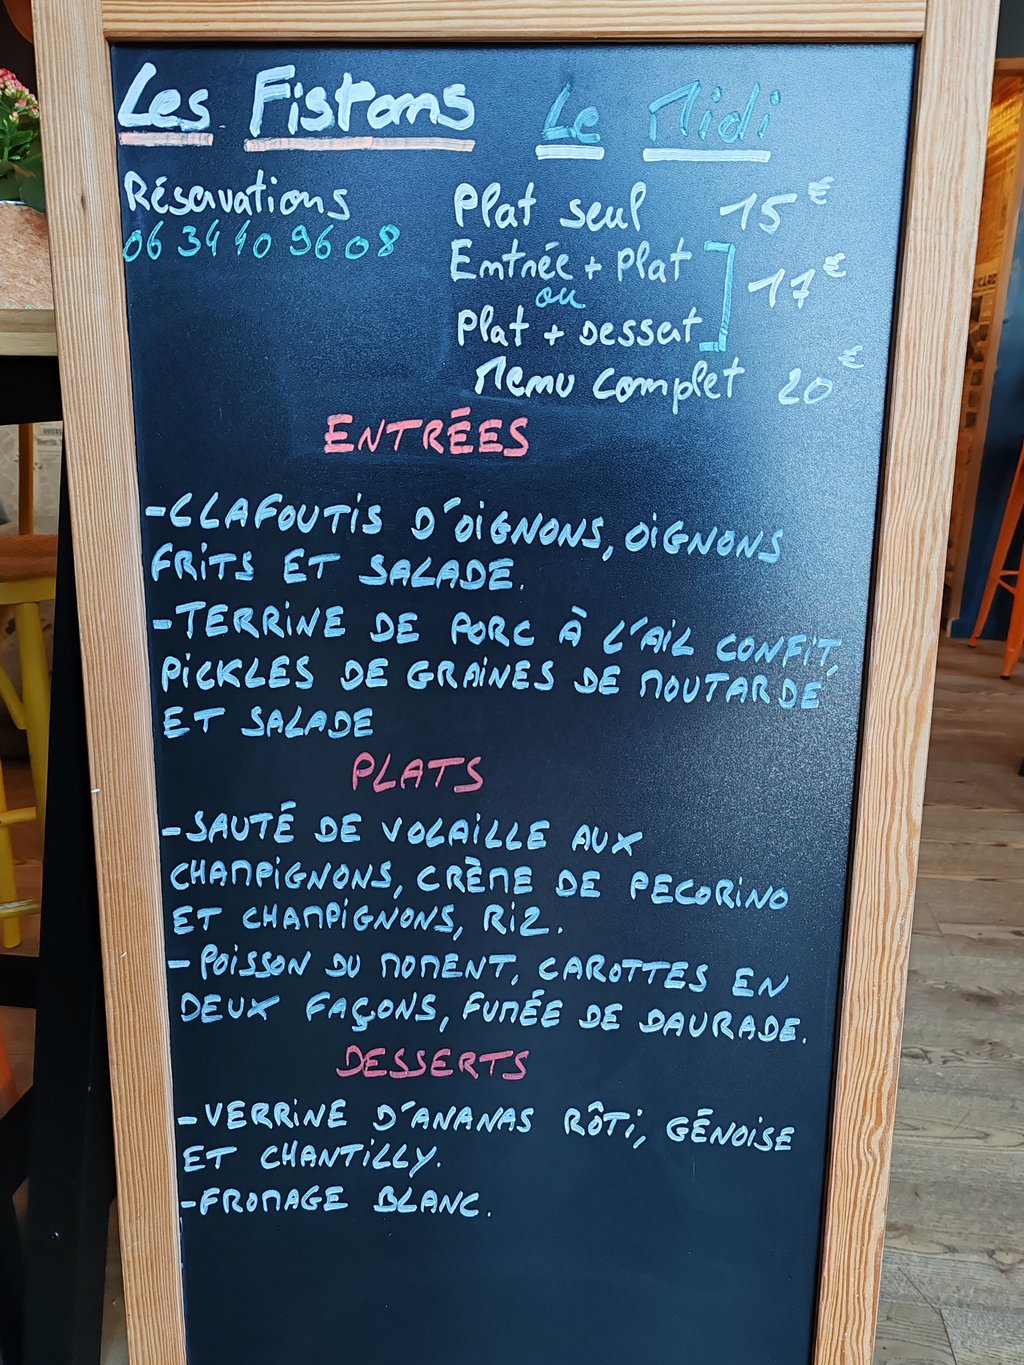 Les Fistons Le Midi
Réservations
06 34 40 96 08
Plat seul 15€
Entrée + Plat
ou 17€
Plat + Dessert
Menu complet 20€
ENTRÉES
-CLAFOUTIS D'OIGNONS, OIGNONS
FRITS ET SALADE.
-TERRINE DE PORC À L'AIL CONFIT,
PICKLES DE GRAINES DE MOUTARDE
ET SALADE
PLATS
-SAUTÉ DE VOLAILLE AUX
CHAMPIGNONS, CRÈME DE PECORINO
ET CHAMPIGNONS, RIZ.
-POISSON DU MOMENT, CAROTTES EN
DEUX FAÇONS, FUMÉE DE DAURADE.
DESSERTS
-VERRINE D'ANANAS RÔTI, GÉNOISE
ET CHANTILLY.
-FROMAGE BLANC.